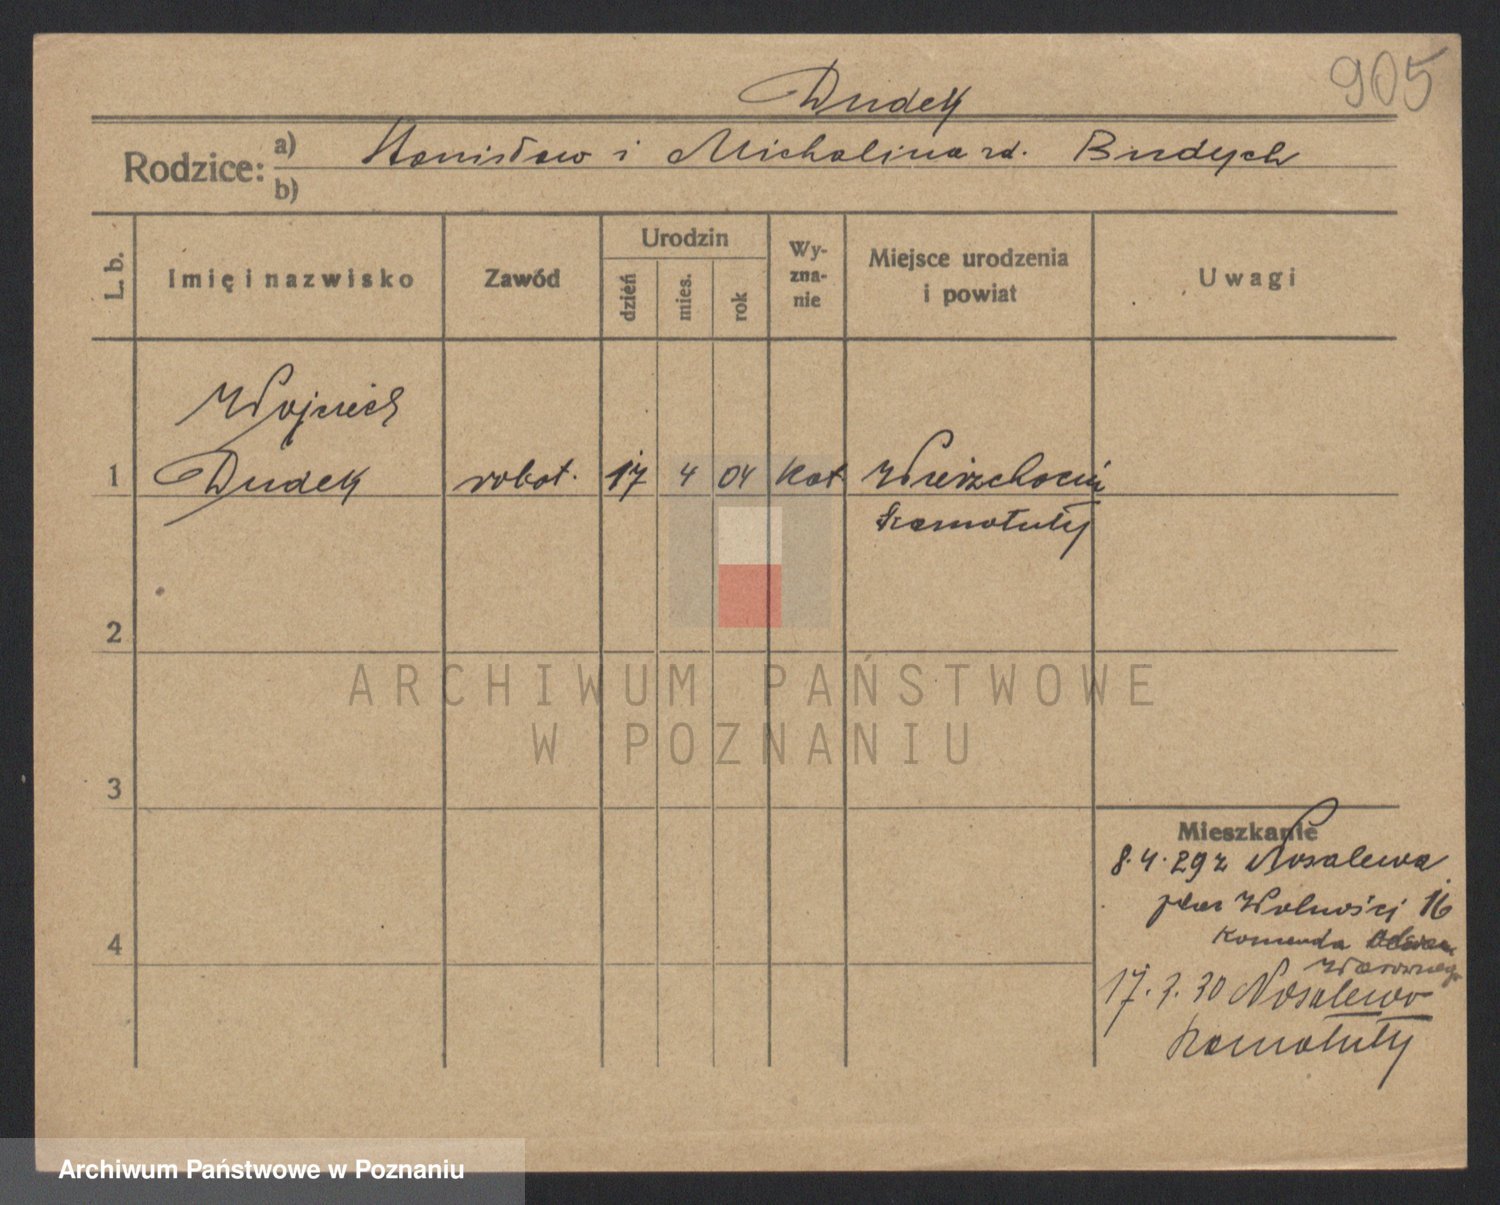 905
Dudek
Rodzice: a) Stanisław i Michalina rd. Budych
b)
L. b. Imię i nazwisko Zawód Urodzin dzień mies. rok Wy-zna-nie Miejsce urodzenia i powiat Uwagi
Wojciech
1 Dudek robot. 17 4 04 kat Wierzchocin
Szamotuły
2
ARCHIWUM PAŃSTWOWE
W POZNANIU
3
Mieszkanie
8.4.29 z Nosalewa
plac Wolności 16
4 Komenda
17.3.30 Nosalewo
Szamotuły
Archiwum Państwowe w Poznaniu